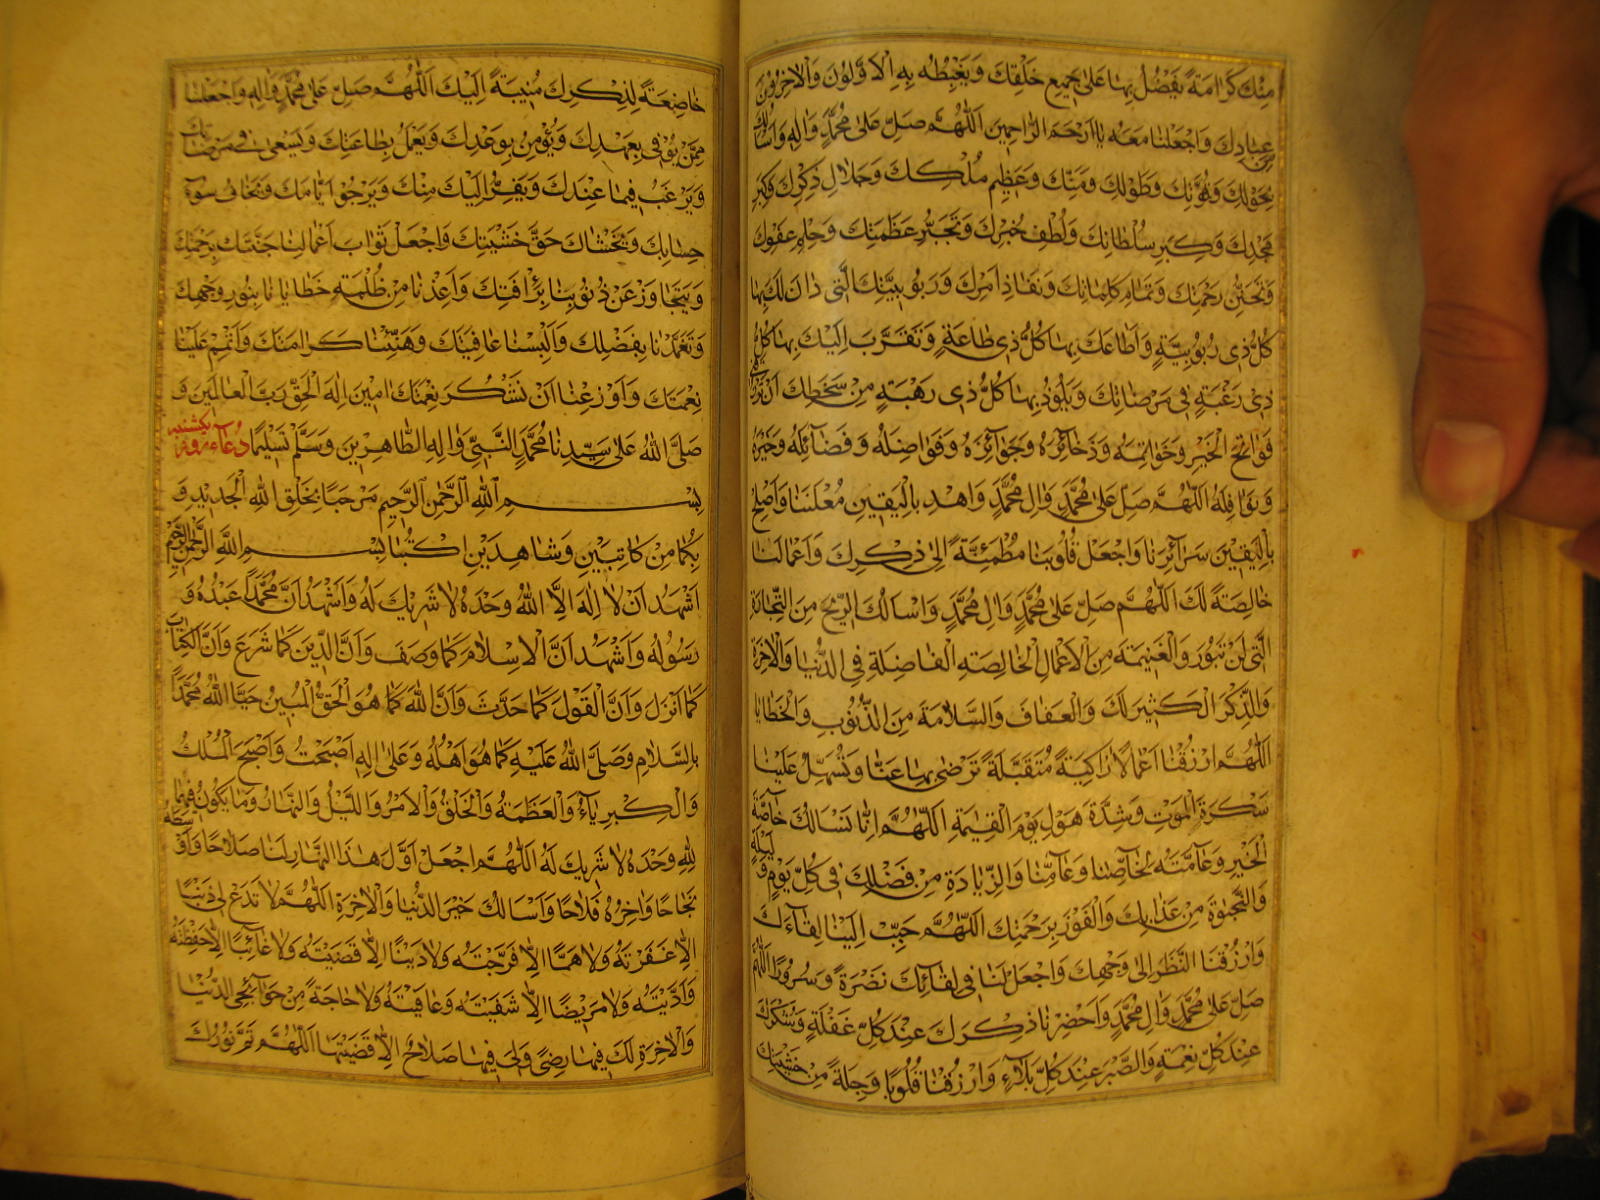 مِنْكَ كَرَامَةً يَفْضُلُ بِهَا عَلٰى جَمِيعِ خَلْقِكَ وَيَغْبِطُهُ بِهِ الْاَوَّلُونَ وَالْاٰخِرُونَ مِنْ
عِبَادِكَ وَاجْعَلْنَا مَعَهُ يَا اَرْحَمَ الرَّاحِمِينَ اَللّٰهُمَّ صَلِّ عَلٰى مُحَمَّدٍ وَاٰلِهِ وَاَسْاَلُكَ
بِحَوْلِكَ وَقُوَّتِكَ وَطَوْلِكَ وَمَنِّكَ وَعَظِيمِ مُلْكِكَ وَجَلَالِ ذِكْرِكَ وَكِبَرِ
مَجْدِكَ وَكِبَرِ سُلْطَانِكَ وَلُطْفِ خُبْرِكَ وَتَجَبُّرِ عَظَمَتِكَ وَحِلْمِ عَفْوِكَ
وَتَحَنُّنِ رَحْمَتِكَ وَتَمَامِ كَلِمَاتِكَ وَنَفَاذِ اَمْرِكَ وَرَبُوبِيَّتِكَ الَّتِى دَانَ لَكَ بِهَا
كُلُّ ذِى رُبُوبِيَّةٍ وَاَطَاعَكَ بِهَا كُلُّ ذِى طَاعَةٍ وَتَقَرَّبَ اِلَيْكَ بِهَا كُلُّ
ذِى رَغْبَةٍ فِى مَرْضَاتِكَ وَيَلُوذُ بِهَا كُلُّ ذِى رَهْبَةٍ مِنْ سَخَطِكَ اَنْ تَرْزُقَنِى
فَوَاتِحَ الْخَيْرِ وَخَوَاتِمَهُ وَذَخَائِرَهُ وَجَوَائِزَهُ وَفَوَاضِلَهُ وَفَضَائِلَهُ وَخَيْرَهُ
وَنَوَافِلَهُ اَللّٰهُمَّ صَلِّ عَلٰى مُحَمَّدٍ وَاٰلِ مُحَمَّدٍ وَاهْدِ بِالْيَقِينِ مُعْلَنَنَا وَاَصْلِحْ
بِالْيَقِينِ سَرَائِرَنَا وَاجْعَلْ قُلُوبَنَا مُطْمَئِنَّةً اِلٰى ذِكْرِكَ وَاَعْمَالَنَا
خَالِصَةً لَكَ اَللّٰهُمَّ صَلِّ عَلٰى مُحَمَّدٍ وَاٰلِ مُحَمَّدٍ وَاَسْاَلُكَ الرِّبْحَ مِنَ التِّجَارَةِ
الَّتِى لَنْ تَبُورَ وَالْغَنِيمَةَ مِنَ الْاَعْمَالِ الْخَالِصَةِ الْفَاضِلَةِ فِى الدُّنْيَا وَالْاٰخِرَةِ
وَالذِّكْرَ الْكَثِيرَ لَكَ وَالْعَفَافَ وَالسَّلَامَةَ مِنَ الذُّنُوبِ وَالْخَطَايَا
اَللّٰهُمَّ ارْزُقْنَا اَعْمَالًا زَاكِيَةً مُتَقَبَّلَةً تَرْضٰى بِهَا عَنَّا وَتُسَهِّلُ عَلَيْنَا
سَكْرَةَ الْمَوْتِ وَشِدَّةَ هَوْلِ يَوْمِ الْقِيٰمَةِ اَللّٰهُمَّ اِنَّا نَسْاَلُكَ خَاصَّةَ
الْخَيْرِ وَعَامَّتَهُ لِخَاصِّنَا وَعَامِّنَا وَالزِّيَادَةَ مِنْ فَضْلِكَ فِى كُلِّ يَوْمٍ وَلَيْلَةٍ
وَالنَّجٰوةَ مِنْ عَذَابِكَ وَالْفَوْزَ بِرَحْمَتِكَ اَللّٰهُمَّ حَبِّبْ اِلَيْنَا لِقَاءَكَ
وَارْزُقْنَا النَّظَرَ اِلٰى وَجْهِكَ وَاجْعَلْ لَنَا فِى لِقَائِكَ نَضْرَةً وَسُرُورًا اَللّٰهُمَّ
صَلِّ عَلٰى مُحَمَّدٍ وَاٰلِ مُحَمَّدٍ وَاَحْضِرْنَا ذِكْرَكَ عِنْدَ كُلِّ غَفْلَةٍ وَشُكْرَكَ
عِنْدَ كُلِّ نِعْمَةٍ وَالصَّبْرَ عِنْدَ كُلِّ بَلَاءٍ وَارْزُقْنَا قُلُوبًا وَجِلَةً مِنْ خَشْيَتِكَ
خَاضِعَةً لِذِكْرِكَ مُنِيبَةً اِلَيْكَ اَللّٰهُمَّ صَلِّ عَلٰى مُحَمَّدٍ وَاٰلِهِ وَاجْعَلْنَا
مِمَّنْ يُوفِى بِعَهْدِكَ وَيُؤْمِنُ بِوَعْدِكَ وَيَعْمَلُ بِطَاعَتِكَ وَيَسْعٰى فِى مَرْضَاتِكَ
وَيَرْغَبُ فِيمَا عِنْدَكَ وَيَفِرُّ اِلَيْكَ مِنْكَ وَيَرْجُوا اَيَّامَكَ وَيَخَافُ سُوءَ
حِسَابِكَ وَيَخْشَاكَ حَقَّ خَشْيَتِكَ وَاجْعَلْ ثَوَابَ اَعْمَالِنَا جَنَّتَكَ بِرَحْمَتِكَ
وَتَجَاوَزْ عَنْ ذُنُوبِنَا بِرَأْفَتِكَ وَاَعِذْنَا مِنْ ظُلْمَةِ خَطَايَانَا بِنُورِ وَجْهِكَ
وَتَغَمَّدْنَا بِفَضْلِكَ وَاَلْبِسْنَا عَافِيَتَكَ وَهَنِّئْنَا كَرَامَتَكَ وَاَتْمِمْ عَلَيْنَا
نِعْمَتَكَ وَاَوْزِعْنَا اَنْ نَشْكُرَ نِعْمَتَكَ اٰمِينَ اِلٰهَ الْحَقِّ رَبَّ الْعَالَمِينَ وَ
صَلَّى اللّٰهُ عَلٰى سَيِّدِنَا مُحَمَّدٍ النَّبِىِّ وَاٰلِهِ الطَّاهِرِينَ وَسَلَّمَ تَسْلِيمًا دُعَاء روز يكشنبه
بِسْمِ اللّٰهِ الرَّحْمٰنِ الرَّحِيمِ مَرْحَبًا بِخَلْقِ اللّٰهِ الْجَدِيدِ وَ
بِكُمَا مِنْ كَاتِبَيْنِ وَشَاهِدَيْنِ اكْتُبَا بِسْمِ اللّٰهِ الرَّحْمٰنِ الرَّحِيمِ
اَشْهَدُ اَنْ لَا اِلٰهَ اِلَّا اللّٰهُ وَحْدَهُ لَا شَرِيكَ لَهُ وَاَشْهَدُ اَنَّ مُحَمَّدًا عَبْدُهُ وَ
رَسُولُهُ وَاَشْهَدُ اَنَّ الْاِسْلَامَ كَمَا وَصَفَ وَاَنَّ الدِّينَ كَمَا شَرَعَ وَاَنَّ الْكِتَابَ
كَمَا اَنْزَلَ وَاَنَّ الْقَوْلَ كَمَا حَدَّثَ وَاَنَّ اللّٰهَ كَمَا هُوَ الْحَقُّ الْمُبِينُ حَيَّا اللّٰهُ مُحَمَّدًا
بِالسَّلَامِ وَصَلَّى اللّٰهُ عَلَيْهِ كَمَا هُوَ اَهْلُهُ وَعَلٰى اٰلِهِ اَصْبَحْتُ وَاَصْبَحَ الْمُلْكُ
وَالْكِبْرِيَاءُ وَالْعَظَمَةُ وَالْخَلْقُ وَالْاَمْرُ وَاللَّيْلُ وَالنَّهَارُ وَمَا يَكُونُ فِيهِمَا
لِلّٰهِ وَحْدَهُ لَا شَرِيكَ لَهُ اَللّٰهُمَّ اجْعَلْ اَوَّلَ هٰذَا النَّهَارِ لَنَا صَلَاحًا وَاَوْسَطَهُ
نَجَاحًا وَاٰخِرَهُ فَلَاحًا وَاَسْاَلُكَ خَيْرَ الدُّنْيَا وَالْاٰخِرَةِ اَللّٰهُمَّ لَا تَدَعْ لِى ذَنْبًا
اِلَّا غَفَرْتَهُ وَلَا هَمًّا اِلَّا فَرَّجْتَهُ وَلَا دَيْنًا اِلَّا قَضَيْتَهُ وَلَا غَائِبًا اِلَّا حَفِظْتَهُ
وَاَدَّيْتَهُ وَلَا مَرِيضًا اِلَّا شَفَيْتَهُ وَعَافَيْتَهُ وَلَا حَاجَةً مِنْ حَوَائِجِ الدُّنْيَا
وَالْاٰخِرَةِ لَكَ فِيهَا رِضًى وَلِىَ فِيهَا صَلَاحٌ اِلَّا قَضَيْتَهَا اَللّٰهُمَّ تَمَّ نُورُكَ